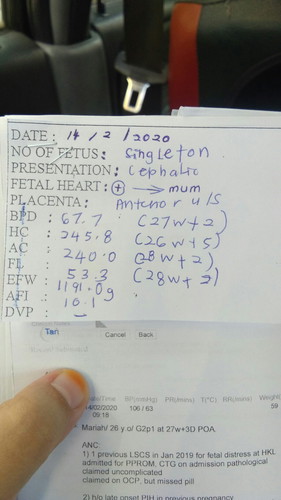 DATE: 14 / 2 / 2020
NO OF FETUS: Singleton.
PRESENTATION: Cephalic
FETAL HEART: ⊕ → mum
PLACENTA: Anterior u/s
BPD : 67.7 (27w+2)
HC : 245.8 (26w+5)
AC : 240.0 (28w+2)
FL : 53.3 (28w+2)
EFW : 1191.0g
AFI : 10.1
DVP : –
Tan
Cancel Back
Date/Time BP(mmHg) PR(/mins) T(°C) RR(/mins) Weight(
14/02/2020 106 / 63 59
09:18
Mariah/ 26 y o/ G2p1 at 27w+3D POA.
ANC:
1) 1 previous LSCS in Jan 2019 for fetal distress at HKL
admitted for PPROM, CTG on admission pathological
claimed uncomplicated
claimed on OCP, but missed pill
2) h/o late onset PIH in previous pregnancy